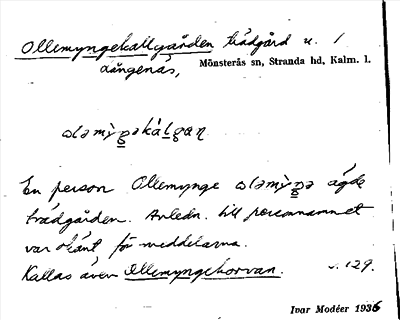 Ollemyngekallgården trädgård u. 1
Långenäs, Mönsterås sn, Stranda hd, Kalm. l.
En person Ollemynge ägde
trädgården. Anledn. till personnamnet
var okänt för meddelarna.
Kallas även Ollemyngehorvan. 129.
Ivar Modéer 1936